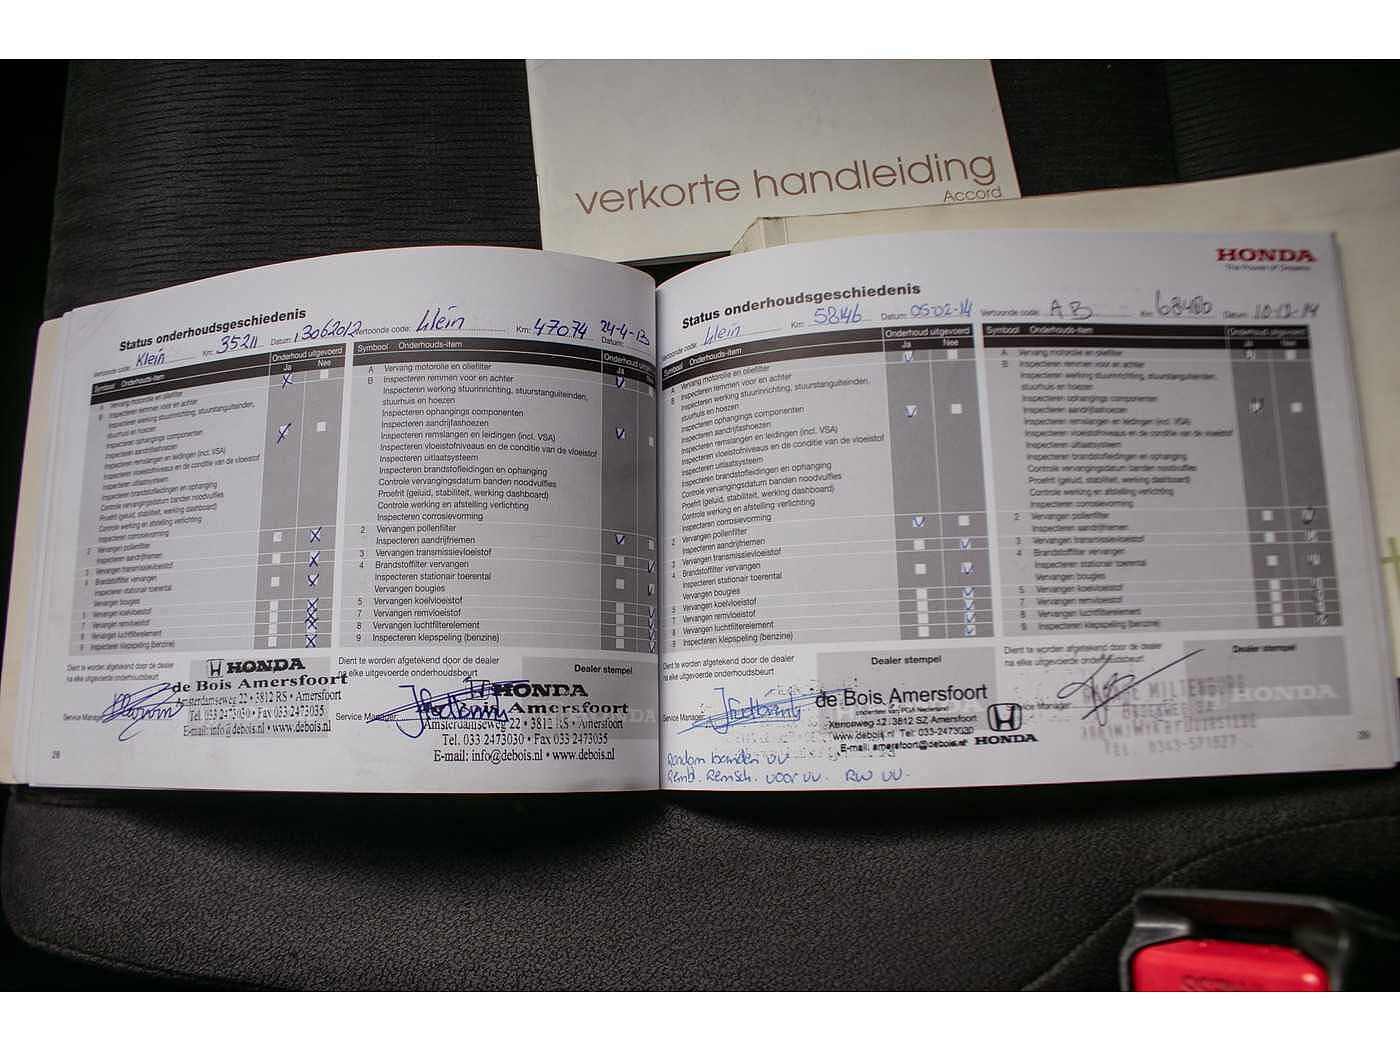 verkorte handleiding
Accord
Status onderhoudsgeschiedenis
Vertoonde code: Klein Km: 35211 Datum: 13062012
Symbool Onderhouds-item Onderhoud uitgevoerd
Ja Nee
A Vervang motorolie en oliefilter
B Inspecteren remmen voor en achter
Inspecteren werking stuurinrichting, stuurstangeinden,
stuurhuis en hoezen
Inspecteren ophangings componenten
Inspecteren aandrijfashoezen
Inspecteren remslangen en leidingen (incl. VSA)
Inspecteren vloeistofniveaus en de conditie van de vloeistof
Inspecteren uitlaatsysteem
Inspecteren brandstofleidingen en ophanging
Controle vervangingsdatum banden noodvulfles
Proefrit (geluid, stabiliteit, werking dashboard)
Controle werking en afstelling verlichting
Inspecteren corrosievorming
2 Vervangen pollenfilter
Inspecteren aandrijfriemen
3 Vervangen transmissievloeistof
4 Brandstoffilter vervangen
Inspecteren stationair toerental
Vervangen bougies
5 Vervangen koelvloeistof
7 Vervangen remvloeistof
8 Vervangen luchtfilterelement
9 Inspecteren klepspeling (benzine)
Dient te worden afgetekend door de dealer
na elke uitgevoerde onderhoudsbeurt
HONDA
de Bois Amersfoort
Amsterdamseweg 22 • 3812 RS • Amersfoort
Tel. 033 2473030 • Fax 033 2473035
E-mail: info@debois.nl • www.debois.nl
Service Manager:
28
Vertoonde code: Klein Km: 47074 Datum: 24-4-13
Symbool Onderhouds-item Onderhoud uitgevoerd
Ja
A Vervang motorolie en oliefilter
B Inspecteren remmen voor en achter
Inspecteren werking stuurinrichting, stuurstangeinden,
stuurhuis en hoezen
Inspecteren ophangings componenten
Inspecteren aandrijfashoezen
Inspecteren remslangen en leidingen (incl. VSA)
Inspecteren vloeistofniveaus en de conditie van de vloeistof
Inspecteren uitlaatsysteem
Inspecteren brandstofleidingen en ophanging
Controle vervangingsdatum banden noodvulfles
Proefrit (geluid, stabiliteit, werking dashboard)
Controle werking en afstelling verlichting
Inspecteren corrosievorming
2 Vervangen pollenfilter
Inspecteren aandrijfriemen
3 Vervangen transmissievloeistof
4 Brandstoffilter vervangen
Inspecteren stationair toerental
Vervangen bougies
5 Vervangen koelvloeistof
7 Vervangen remvloeistof
8 Vervangen luchtfilterelement
9 Inspecteren klepspeling (benzine)
Dient te worden afgetekend door de dealer
na elke uitgevoerde onderhoudsbeurt
Dealer stempel
HONDA
de Bois Amersfoort
Amsterdamseweg 22 • 3812 RS • Amersfoort
Tel. 033 2473030 • Fax 033 2473035
E-mail: info@debois.nl • www.debois.nl
Service Manager:
HONDA
The Power of Dreams
Status onderhoudsgeschiedenis
Vertoonde code: Klein Km: 58146 Datum: 05-02-14
Symbool Onderhouds-item Onderhoud uitgevoerd
Ja Nee
A Vervang motorolie en oliefilter
B Inspecteren remmen voor en achter
Inspecteren werking stuurinrichting, stuurstangeinden,
stuurhuis en hoezen
Inspecteren ophangings componenten
Inspecteren aandrijfashoezen
Inspecteren remslangen en leidingen (incl. VSA)
Inspecteren vloeistofniveaus en de conditie van de vloeistof
Inspecteren uitlaatsysteem
Inspecteren brandstofleidingen en ophanging
Controle vervangingsdatum banden noodvulfles
Proefrit (geluid, stabiliteit, werking dashboard)
Controle werking en afstelling verlichting
Inspecteren corrosievorming
2 Vervangen pollenfilter
Inspecteren aandrijfriemen
3 Vervangen transmissievloeistof
4 Brandstoffilter vervangen
Inspecteren stationair toerental
Vervangen bougies
5 Vervangen koelvloeistof
7 Vervangen remvloeistof
8 Vervangen luchtfilterelement
9 Inspecteren klepspeling (benzine)
Dient te worden afgetekend door de dealer
na elke uitgevoerde onderhoudsbeurt
Dealer stempel
de Bois Amersfoort
onderdeel van PGA Nederland
12 3812 SZ Amersfoort
www.debois.nl Tel: 033-2473030
E-mail: amersfoort@debois.nl
HONDA
Service Manager:
Rondom banden vv
Remb. Remsch. voor vv. RW vv.
Vertoonde code: A.B Km: 68400 Datum: 10-12-14
Symbool Onderhouds-item Onderhoud uitgevoerd
Ja Nee
A Vervang motorolie en oliefilter
B Inspecteren remmen voor en achter
Inspecteren werking stuurinrichting, stuurstangeinden,
stuurhuis en hoezen
Inspecteren ophangings componenten
Inspecteren aandrijfashoezen
Inspecteren remslangen en leidingen (incl. VSA)
Inspecteren vloeistofniveaus en de conditie van de vloeistof
Inspecteren uitlaatsysteem
Inspecteren brandstofleidingen en ophanging
Controle vervangingsdatum banden noodvulfles
Proefrit (geluid, stabiliteit, werking dashboard)
Controle werking en afstelling verlichting
Inspecteren corrosievorming
2 Vervangen pollenfilter
Inspecteren aandrijfriemen
3 Vervangen transmissievloeistof
4 Brandstoffilter vervangen
Inspecteren stationair toerental
Vervangen bougies
5 Vervangen koelvloeistof
7 Vervangen remvloeistof
8 Vervangen luchtfilterelement
9 Inspecteren klepspeling (benzine)
Dient te worden afgetekend door de dealer
na elke uitgevoerde onderhoudsbeurt
Dealer stempel
HONDA
MILTENBURG
TEL. 0343-571527
Service Manager:
29
PRESS